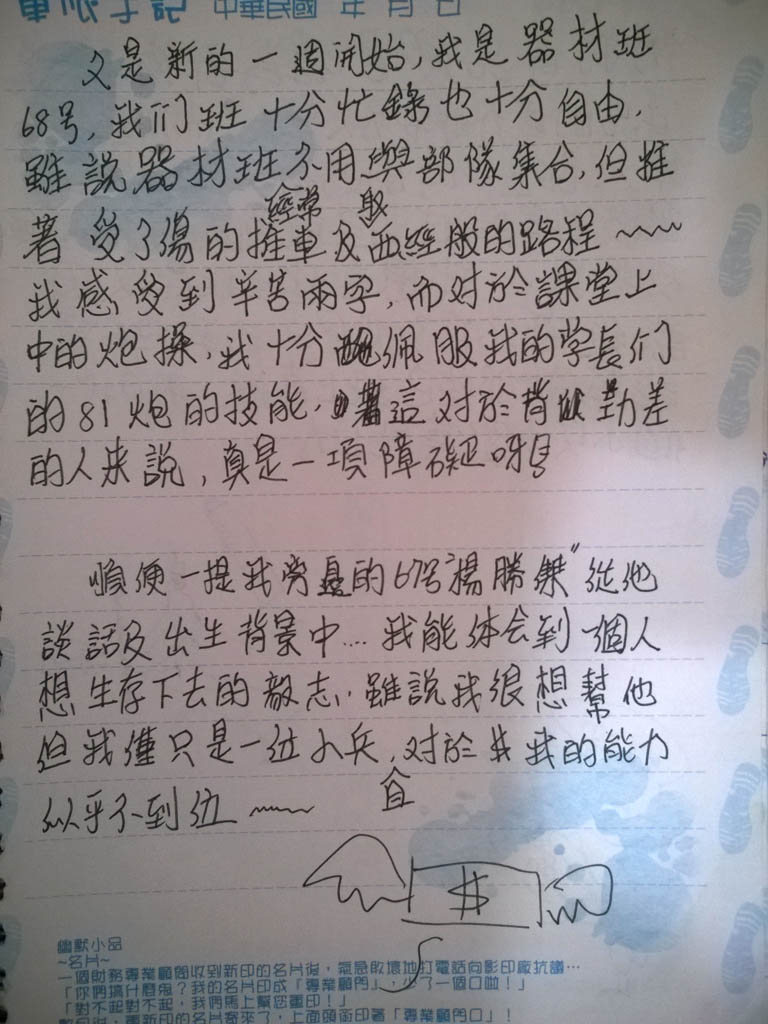 中華民國 年 月 日
又是新的一個開始,我是器材班
68号,我们班十分忙錄也十分自由,
雖說器材班不用與部隊集合,但推
經常 取
著受了傷的推車及西經般的路程~~~
我感受到辛苦兩字,而对於課堂上
中的炮操,我十分佩服我的学長们
的81炮的技能,這对於背勤差
的人來說,真是一項障礙呀!
順便一提我旁邊的67号"楊勝傑"從他
談話及出生背景中....我能体会到一個人
想生存下去的毅志,雖說我很想幫他
但我僅只是一位小兵,对於$我的能力
似乎不到位~~~
$
幽默小品
~名片~
一個財務專業顧問收到新印的名片後,氣急敗壞地打電話向影印廠抗議…
「你們搞什麼鬼?我的名片印成「專業顧門」,少了一個口啦!」
「對不起對不起,我們馬上幫您重印!」
重新印的名片寄來了,上面頭銜印著「專業顧門口」!